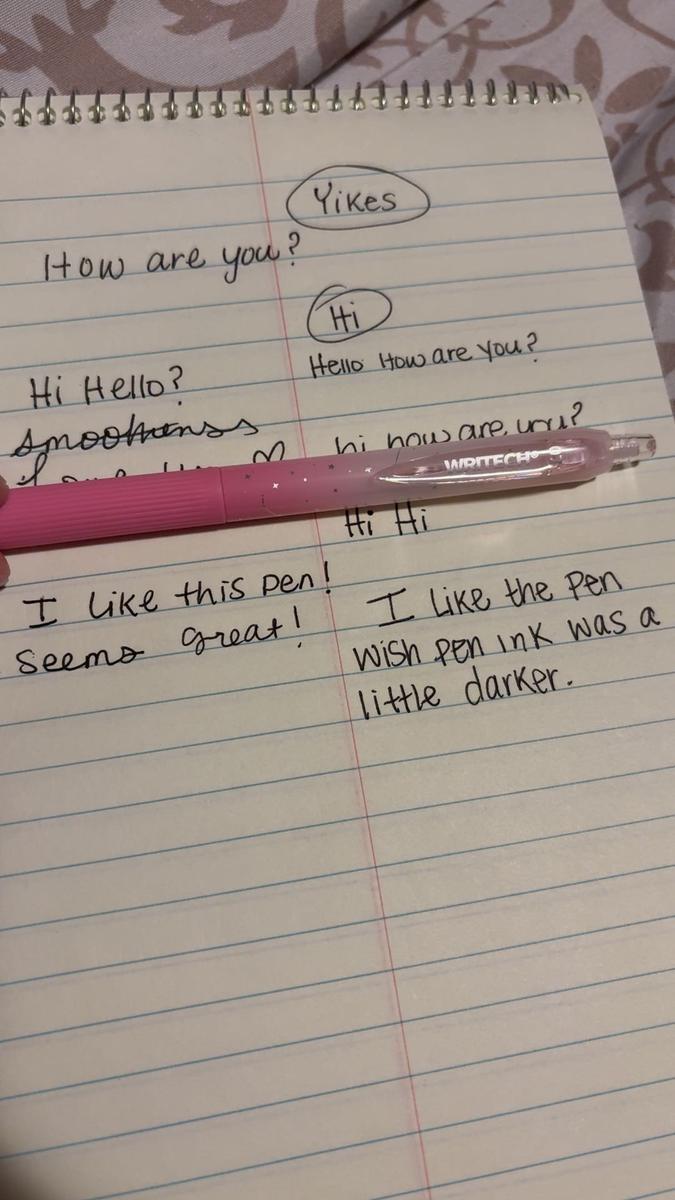 Yikes
How are you?
Hi
Hello How are you?
Hi Hello?
hi how are you?
WRITECH
Hi Hi
I like this pen!
seems great!
I like the pen
wish pen ink was a
little darker.